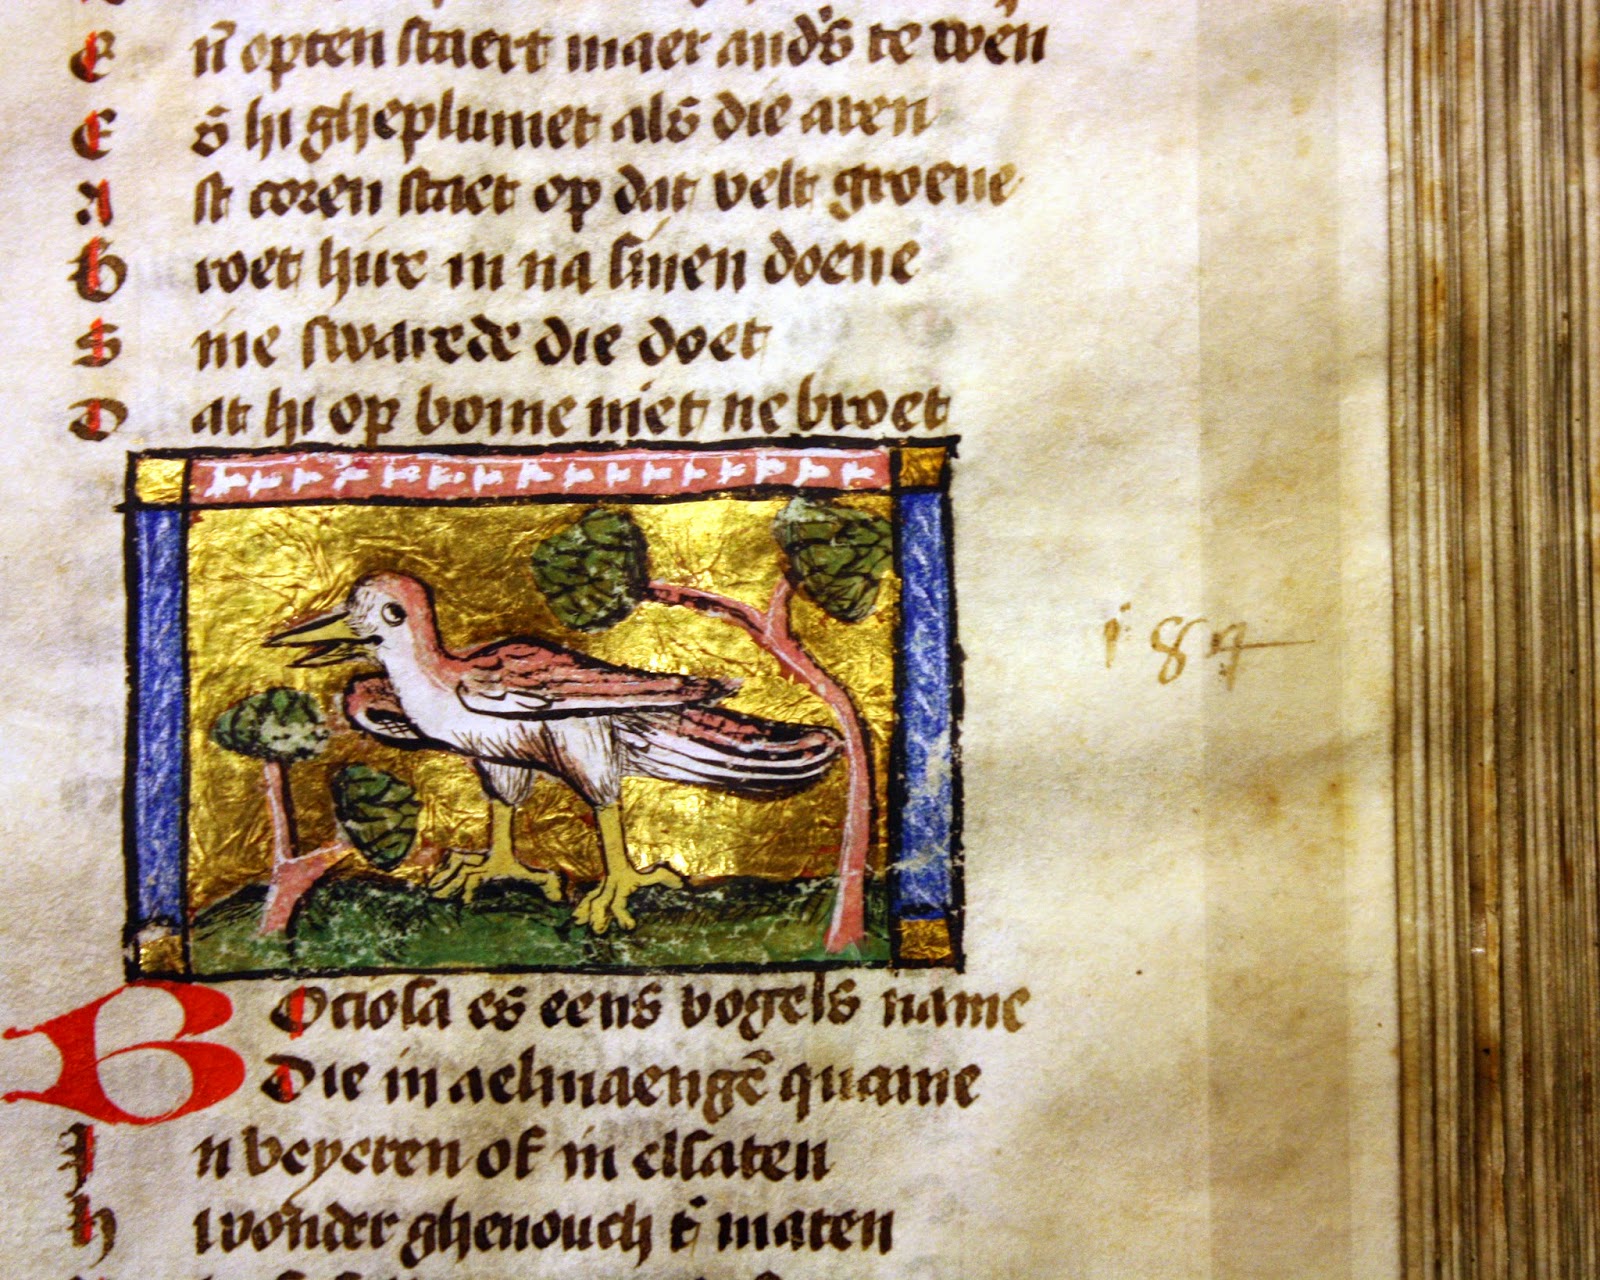 E ñ opten staert maer and's te wḗn
E s̄ hi gheplumet als̄ die aren
A st coren staet op dat velt groene
B roet hire in na sinen doene
S ine swaerde die doet
D at hi op bome niet ne broet
184
B Ociosa es eens vogels name
Die in aelmaengē quame
I n beyeren of in elsaten
H wonder ghenouch t' maten